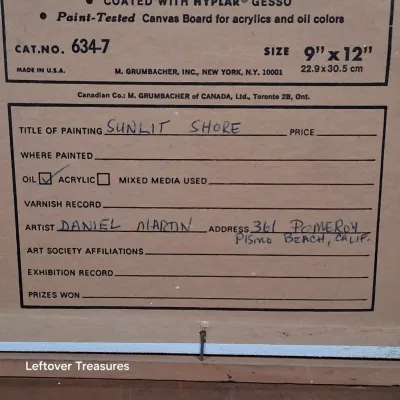 • COATED WITH HYPLAR® GESSO
• Paint-Tested Canvas Board for acrylics and oil colors
CAT. NO. 634-7 SIZE 9" x 12"
MADE IN U.S.A. M. GRUMBACHER, INC., NEW YORK, N.Y. 10001 22.9 x 30.5 cm
Canadian Co.: M. GRUMBACHER of CANADA, Ltd., Toronto 2B, Ont.
TITLE OF PAINTING SUNLIT SHORE PRICE
WHERE PAINTED
OIL ACRYLIC MIXED MEDIA USED
VARNISH RECORD
ARTIST DANIEL MARTIN ADDRESS 361 POMEROY
PISMO BEACH, CALIF.
ART SOCIETY AFFILIATIONS
EXHIBITION RECORD
PRIZES WON
Leftover Treasures